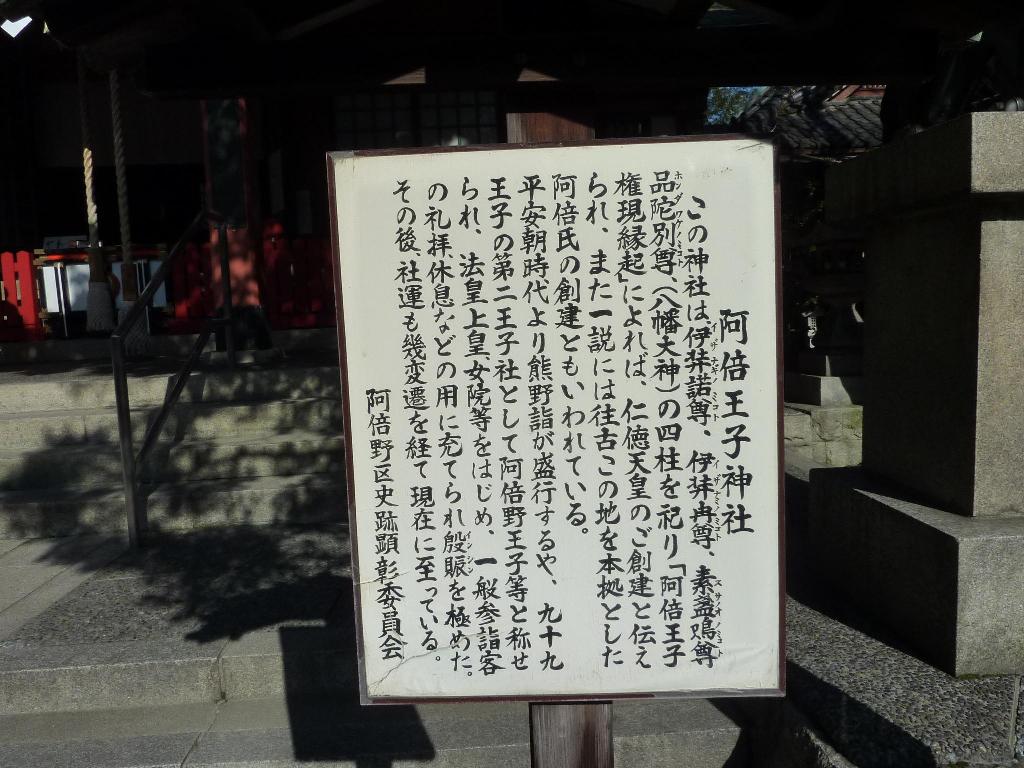 阿倍王子神社
この神社は伊弉諾尊、伊弉冉尊、素盞嗚尊
品陀別尊(八幡大神)の四柱を祀り「阿倍王子
権現縁起」によれば、仁徳天皇のご創建と伝え
られ、また一説には往古この地を本拠とした
阿倍氏の創建ともいわれている。
平安朝時代より熊野詣が盛行するや、九十九
王子の第二王子社として阿倍野王子等と称せ
られ、法皇上皇女院等をはじめ、一般参詣客
の礼拝、休息などの用に充てられ殷賑を極めた。
その後、社運も幾変遷を経て現在に至っている。
阿倍野区史跡顕彰委員会